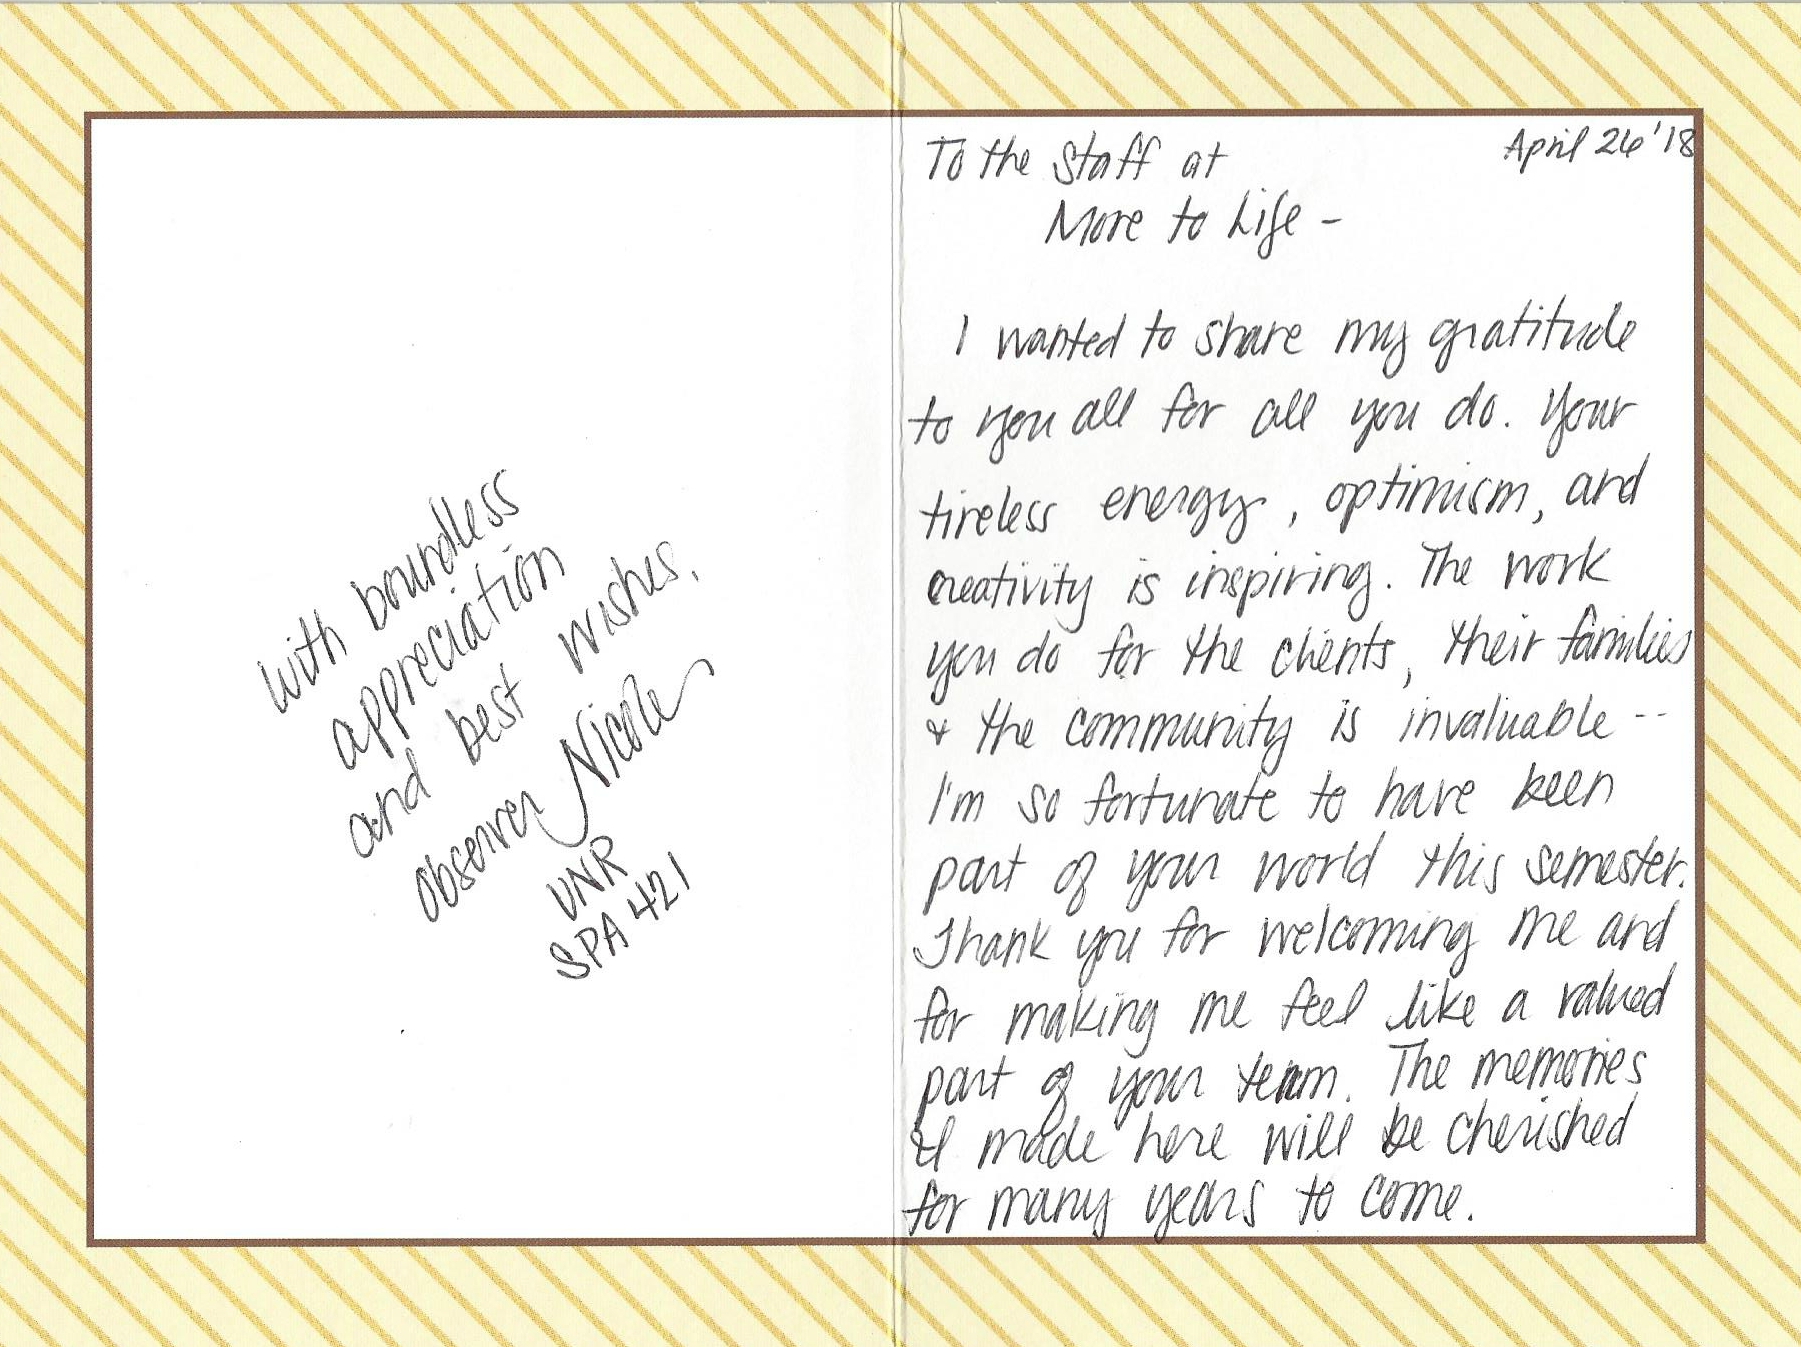 To the Staff at
April 26 '18
More to Life -
I wanted to share my gratitude
to you all for all you do. Your
tireless energy, optimism, and
creativity is inspiring. The work
you do for the clients, their families
& the community is invaluable --
I'm so fortunate to have been
part of your world this semester.
Thank you for welcoming me and
for making me feel like a valued
part of your team. The memories
I made here will be cherished
for many years to come.
With boundless
appreciation
and best wishes,
Observer Nicole
UNR
SPA 421